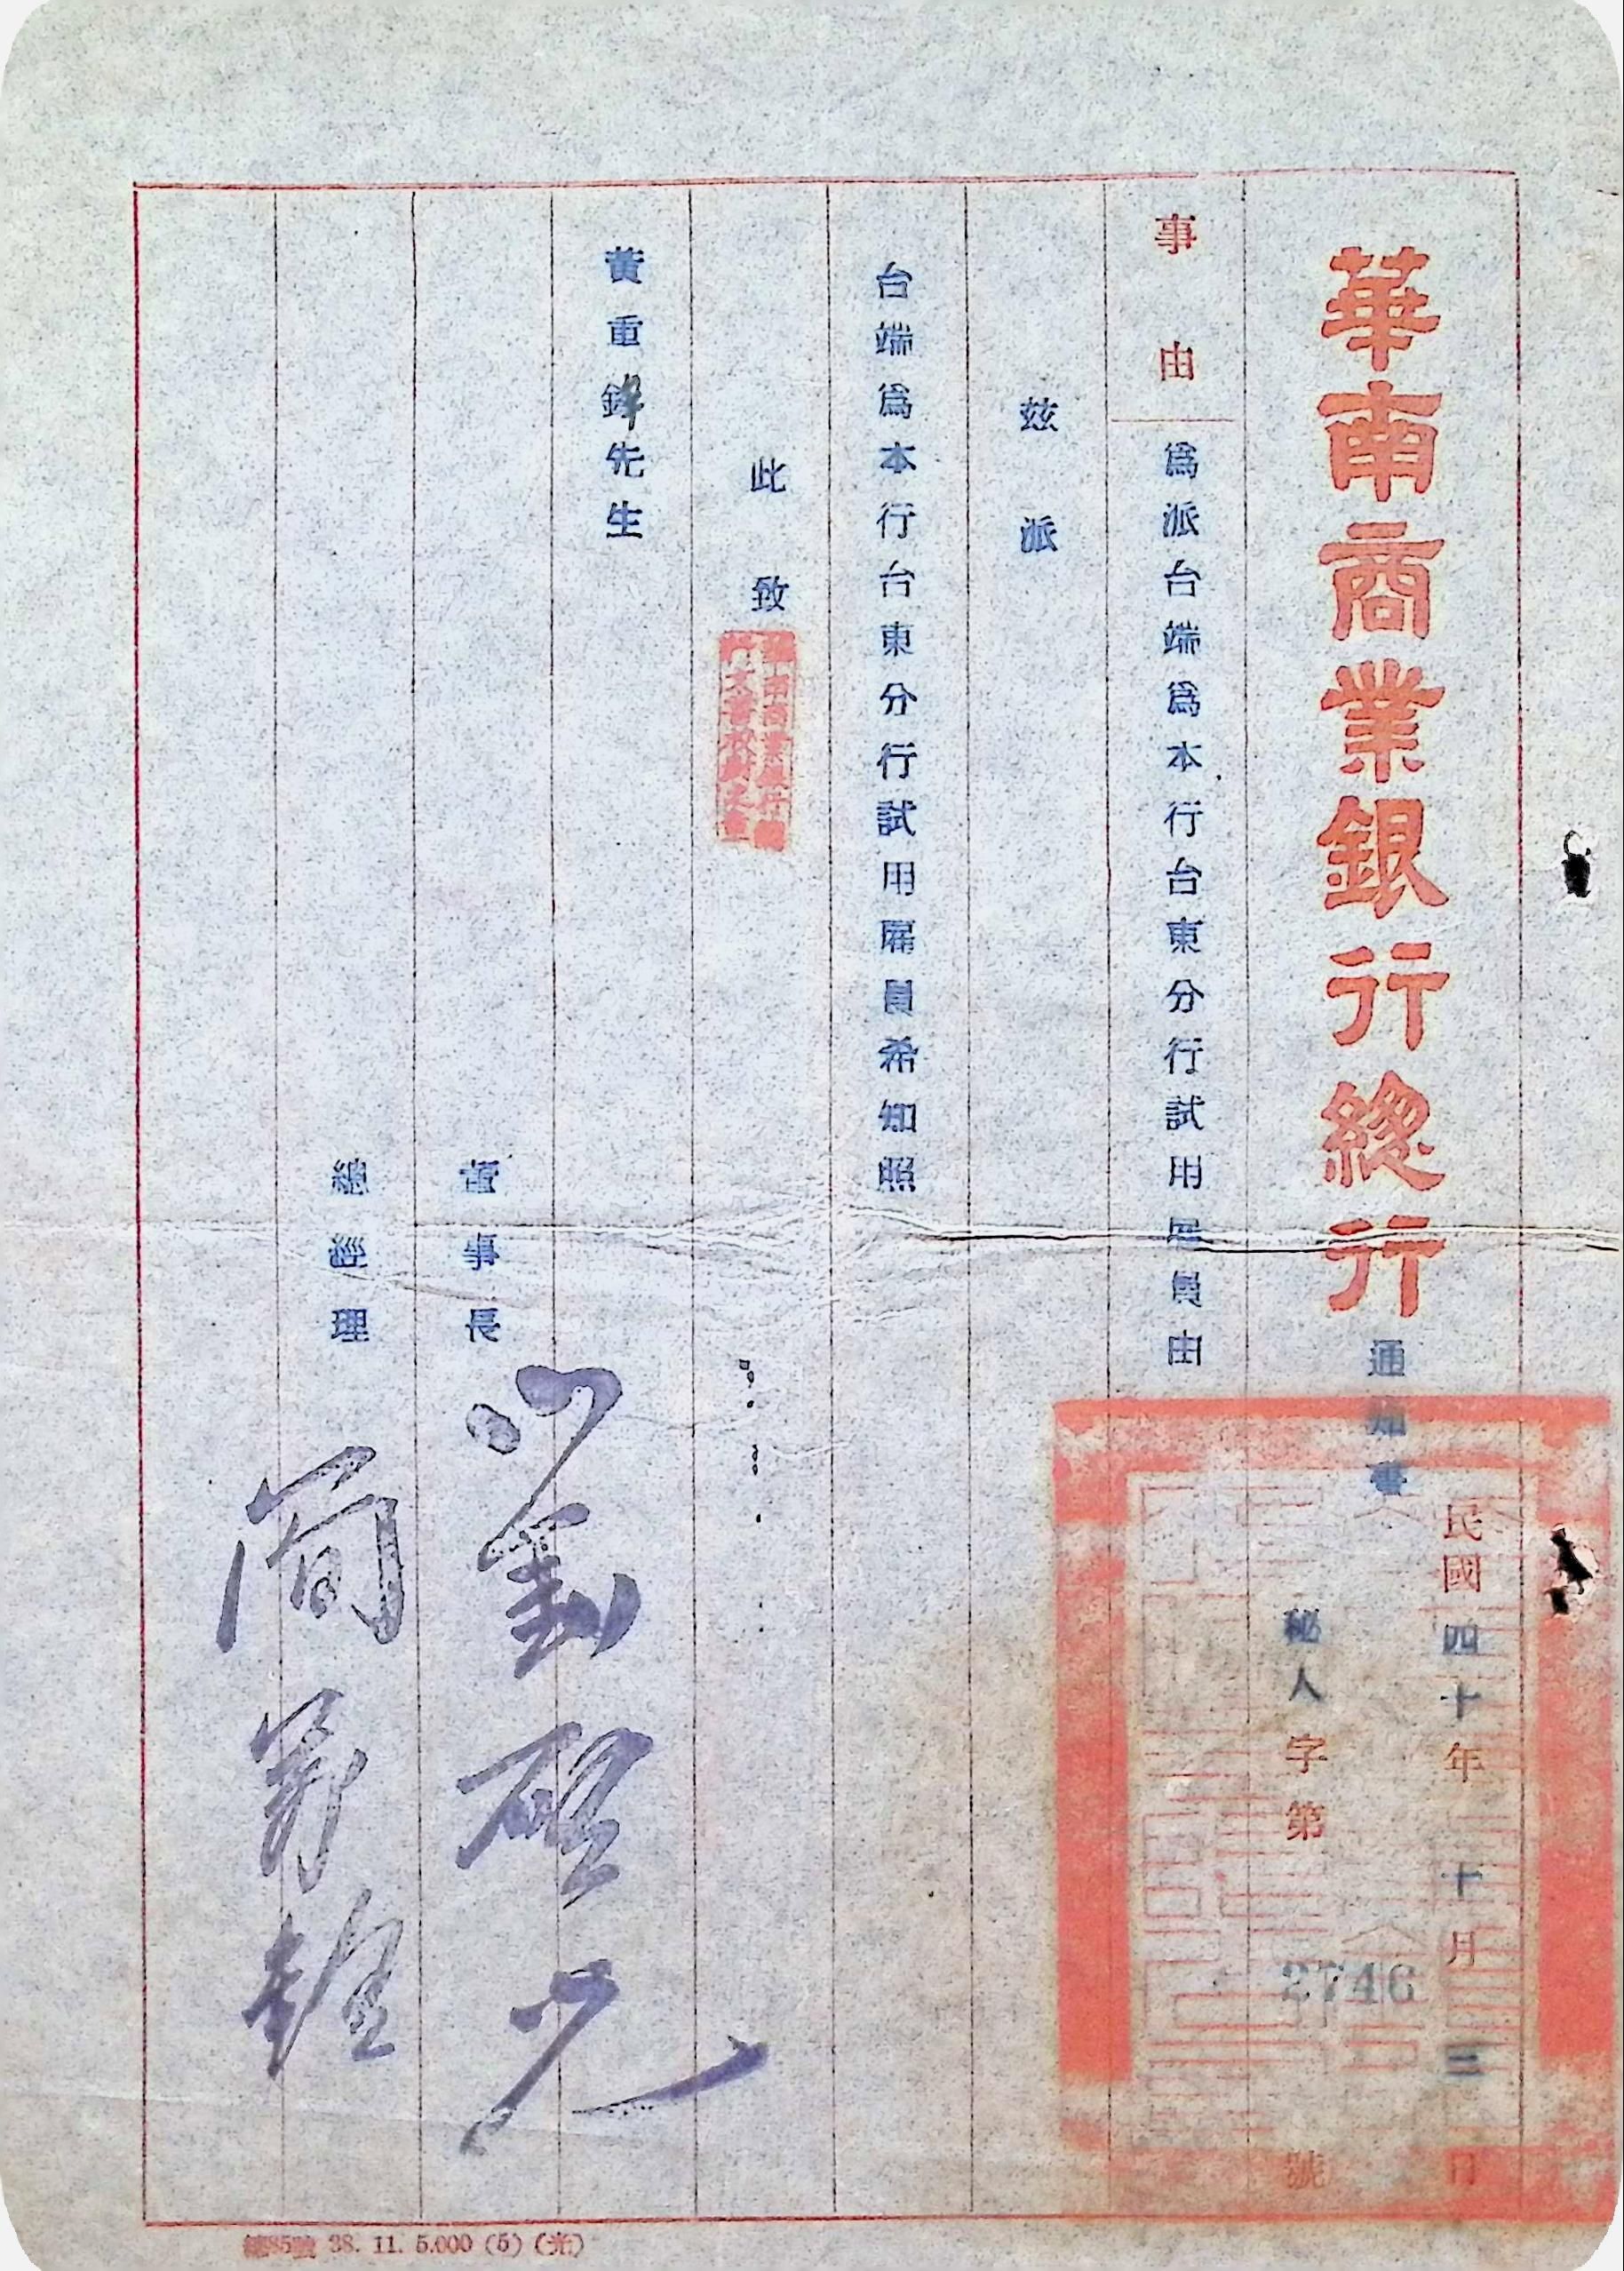 華南商業銀行總行通知書
民國四十年十月三日
秘人字第2746號
事由
為派台端為本行台東分行試用雇員由
茲派
台端為本行台東分行試用雇員希知照
此致
黃重鋒先生
董事長 劉啓光
總經理
總85號 38. 11. 5.000 (5) (光)